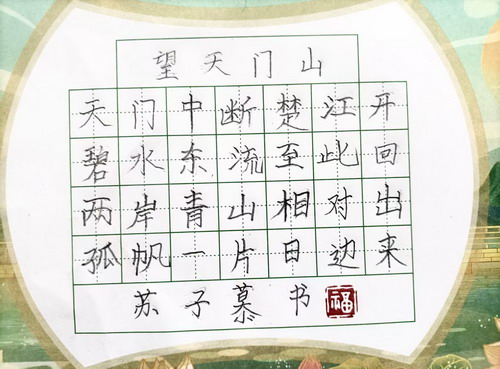 望天门山
天门中断楚江开
碧水东流至此回
两岸青山相对出
孤帆一片日边来
苏子慕书 福